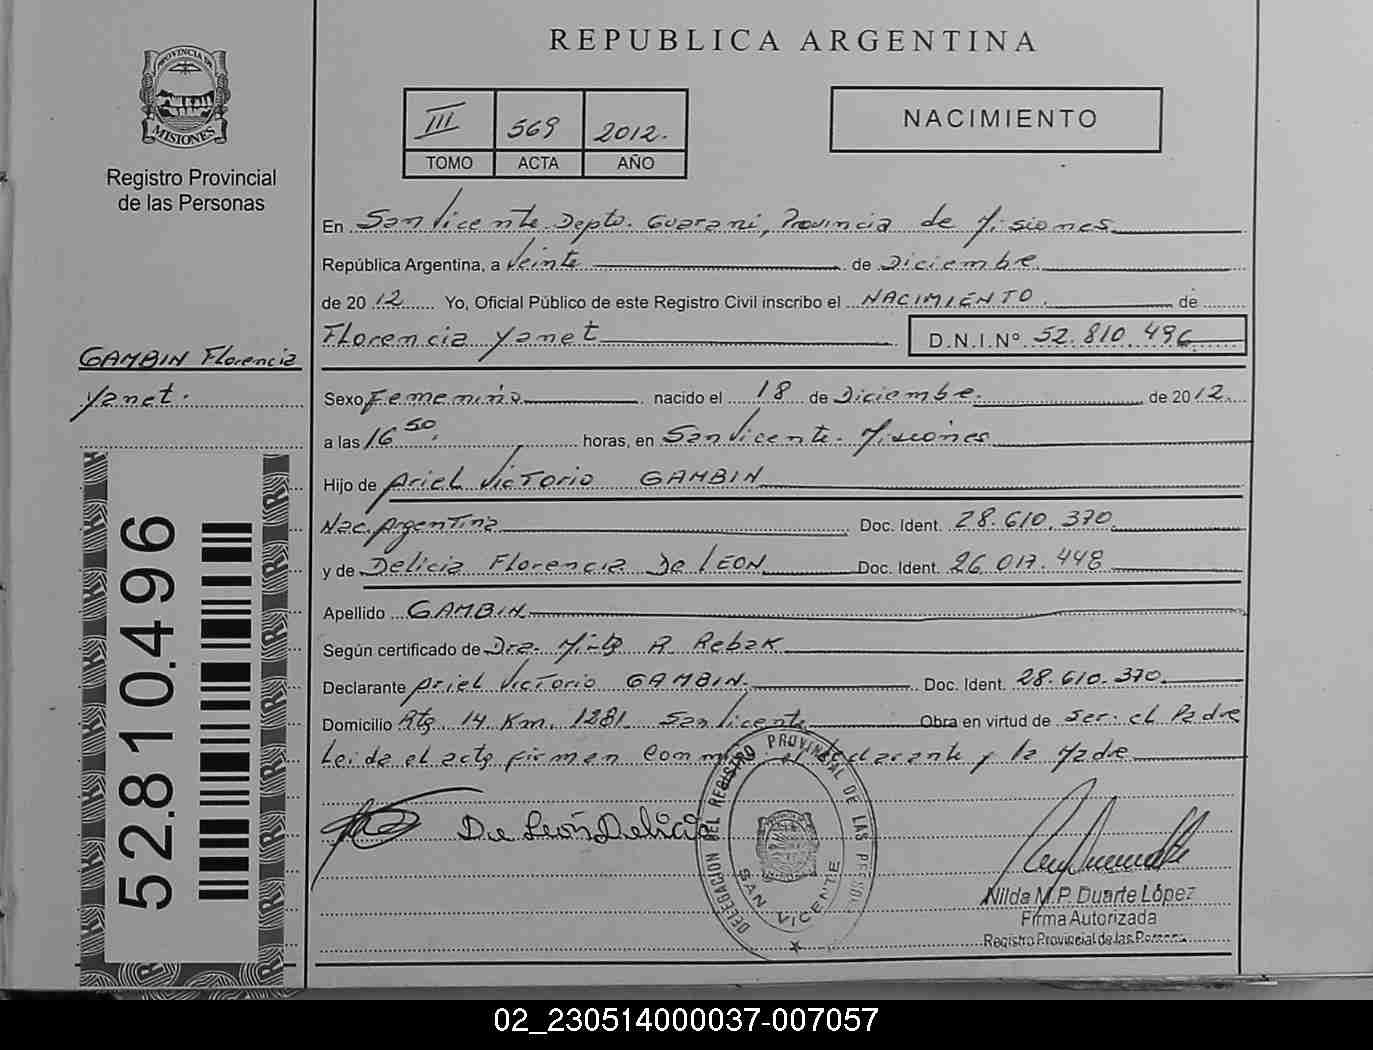 REPUBLICA ARGENTINA
PROVINCIA DE
MISIONES
Registro Provincial
de las Personas
III 569 2012.
TOMO ACTA AÑO
NACIMIENTO
En San Vicente. Depto. Guarani, Provincia de Misiones
República Argentina, a Veinte de Diciembre
de 20 12 Yo, Oficial Público de este Registro Civil inscribo el NACIMIENTO de
Florencia Yanet D.N.I.Nº 52.810.496
GAMBIN Florencia
Yanet.
Sexo Femenino nacido el 18 de Diciembre. de 20 12.
a las 16 50. horas, en San Vicente. Misiones
Hijo de Ariel Victorio GAMBIN
Nac. Argentina Doc. Ident. 28.610.370
y de Delicia Florencia De LEON Doc. Ident. 26.017.448
Apellido GAMBIN
Según certificado de Dra. R Rebak
Declarante Ariel Victorio GAMBIN. Doc. Ident. 28.610.370.
Domicilio Rta 14 Km. 1281 San Vicente Obra en virtud de Ser: el Padre
Leida el acta firman Conmigo el declarante y la Madre
De León Delicia
DELEGACION DEL REGISTRO PROVINCIAL DE LAS PERSONAS
SAN VICENTE
Nilda M.P. Duarte López
Firma Autorizada
Registro Provincial de las Personas
52.810.496
02_230514000037-007057